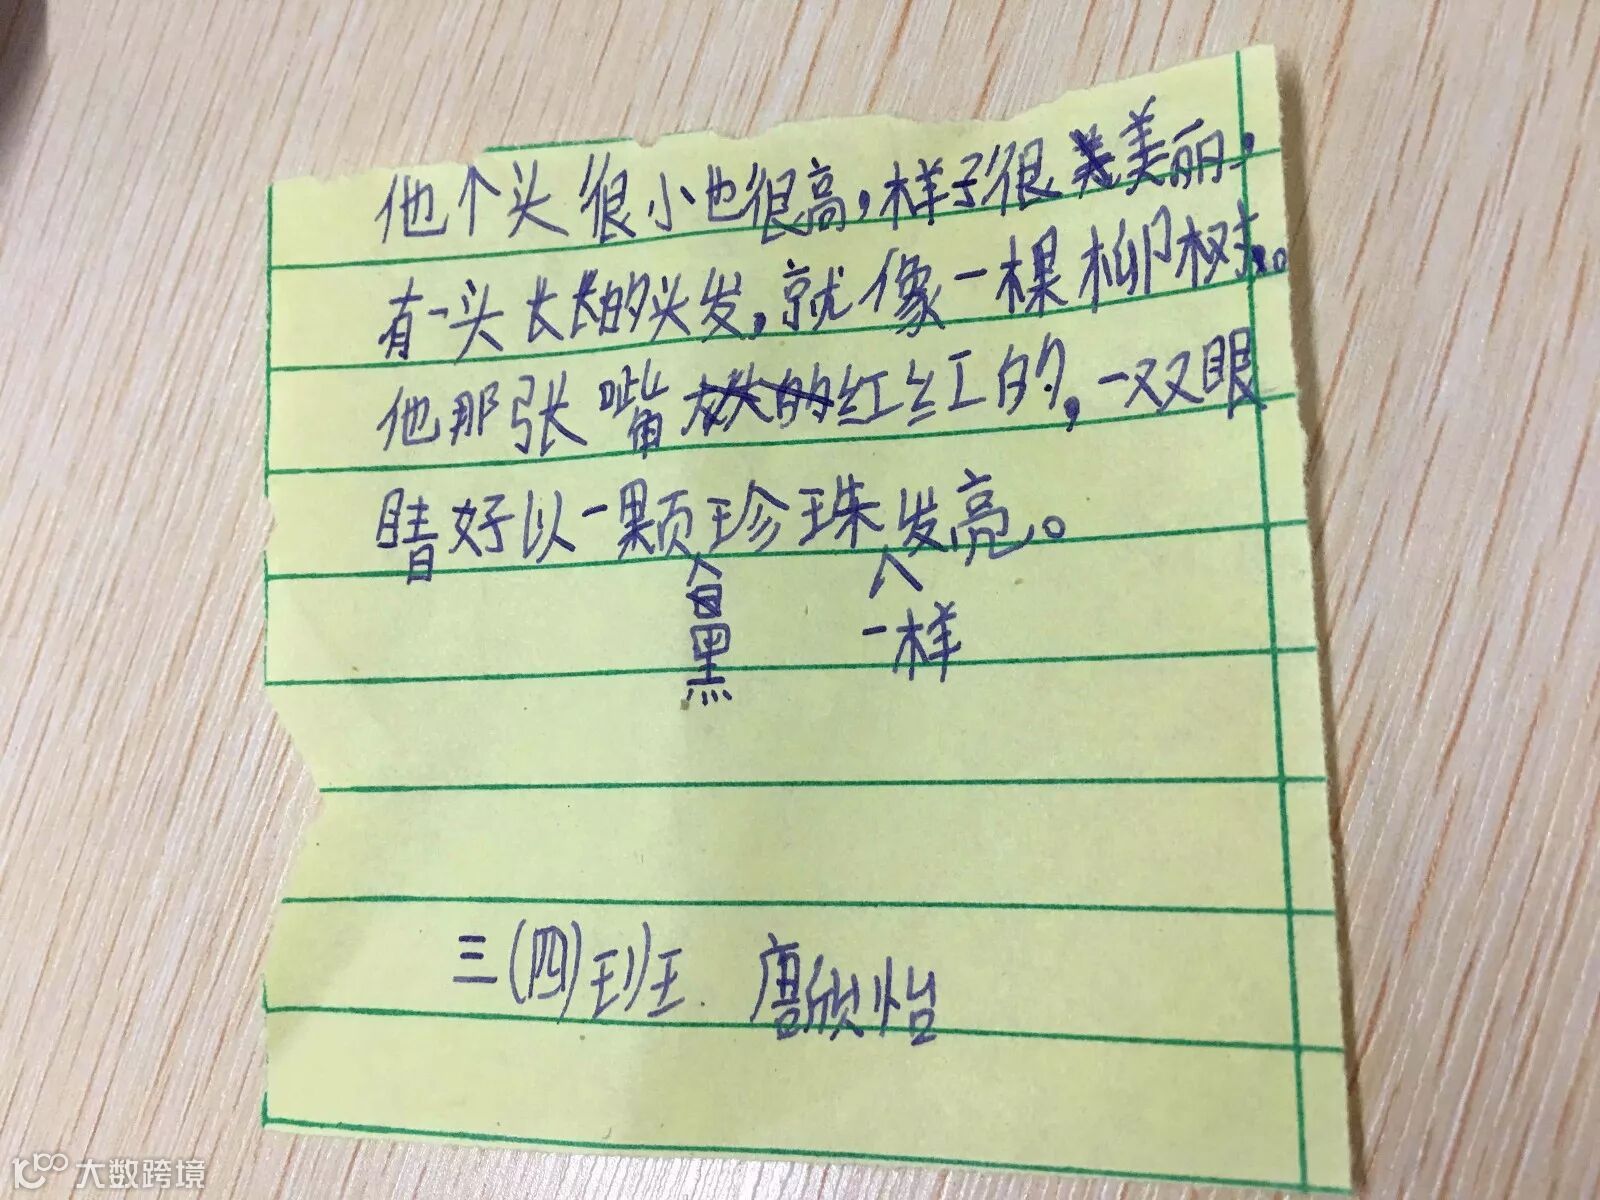 他个头很小也很高，样子很美丽，
有一头长长的头发，就像一棵柳树。
他那张嘴红红的，一双眼
睛好以一颗珍珠发亮。
黑 一样
三(四)班 唐欣怡
大数跨境